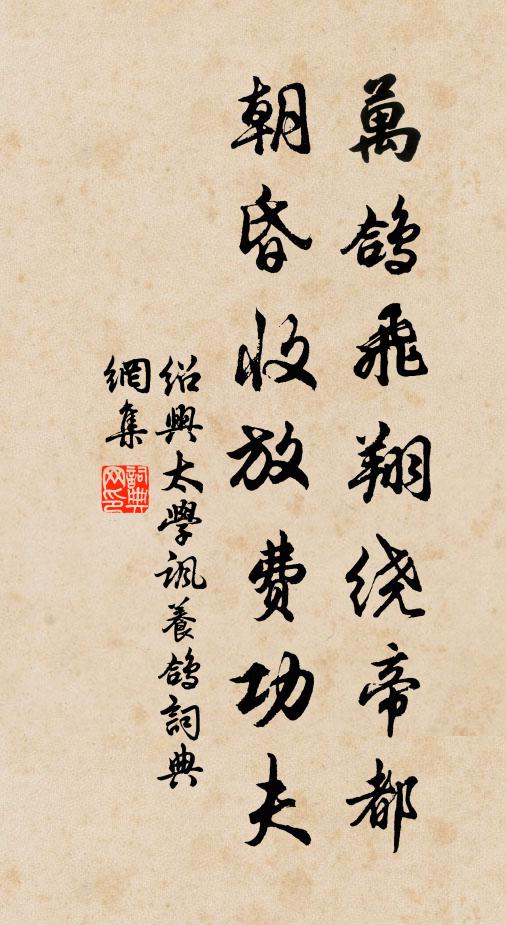 萬鴿飛翔绕帝都
朝昏收放費功夫
绍興太學諷養鴿詞典
網集
詞典
网印